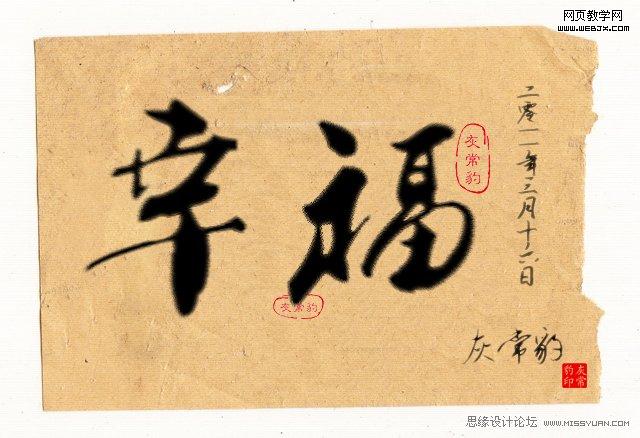 网页教学网
www.WEBJX.com
幸福
灰常豹
灰常豹
二零一一年三月十六日
灰常豹
灰常豹印
思缘设计论坛 WWW.MISSYUAN.COM